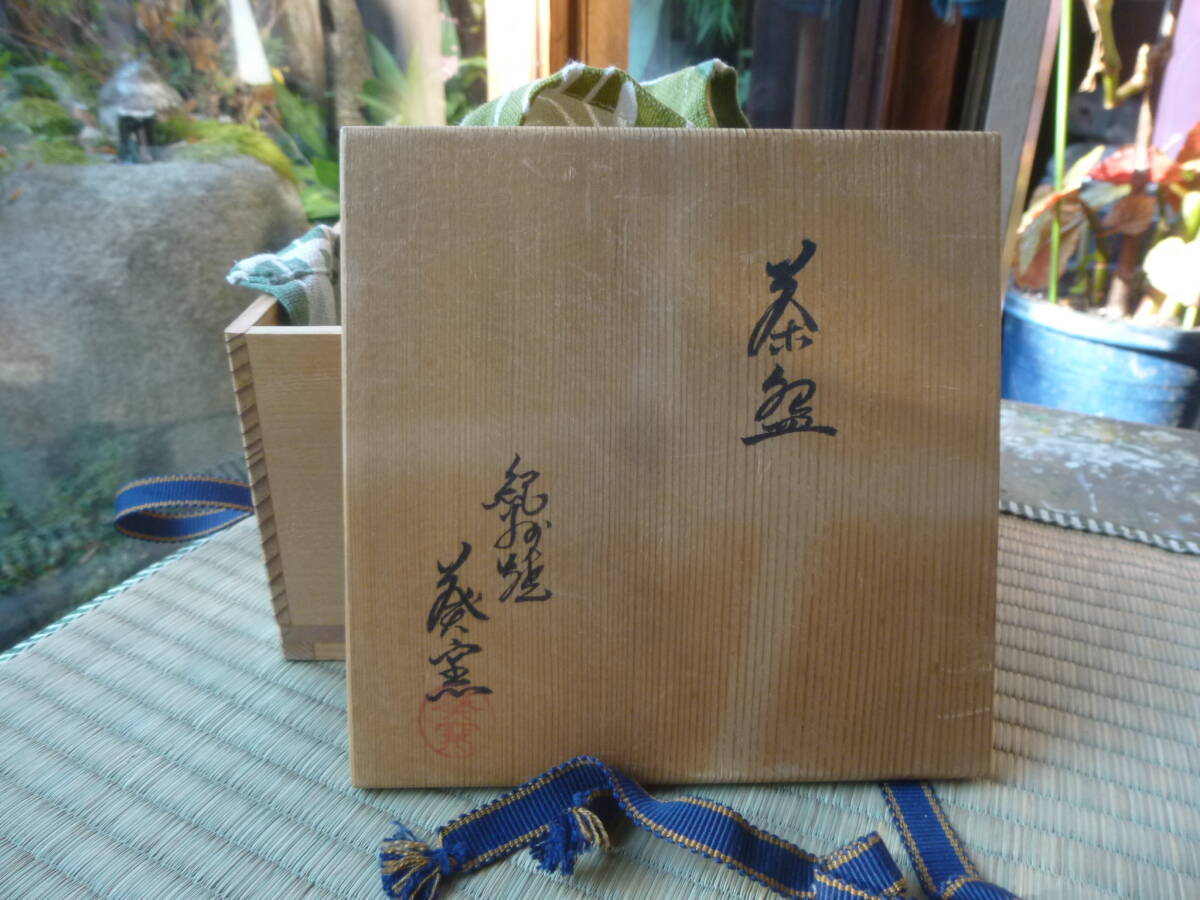 茶盌
紀州焼
葵窯